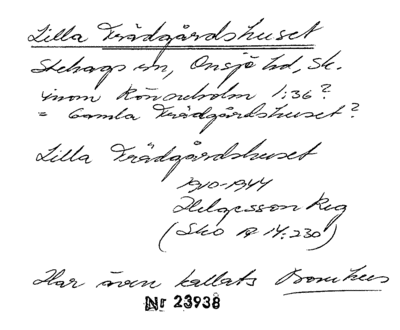 Lilla Trädgårdshuset
Stehags sn, Onsjö hd, Sk.
inom Rönneholm 1:36?
= Gamla Trädgårdshuset?
Lilla Trädgårdshuset
1910-1944
Helgesson Reg
(Sko A 14:230)
Har även kallats
Nr 23938